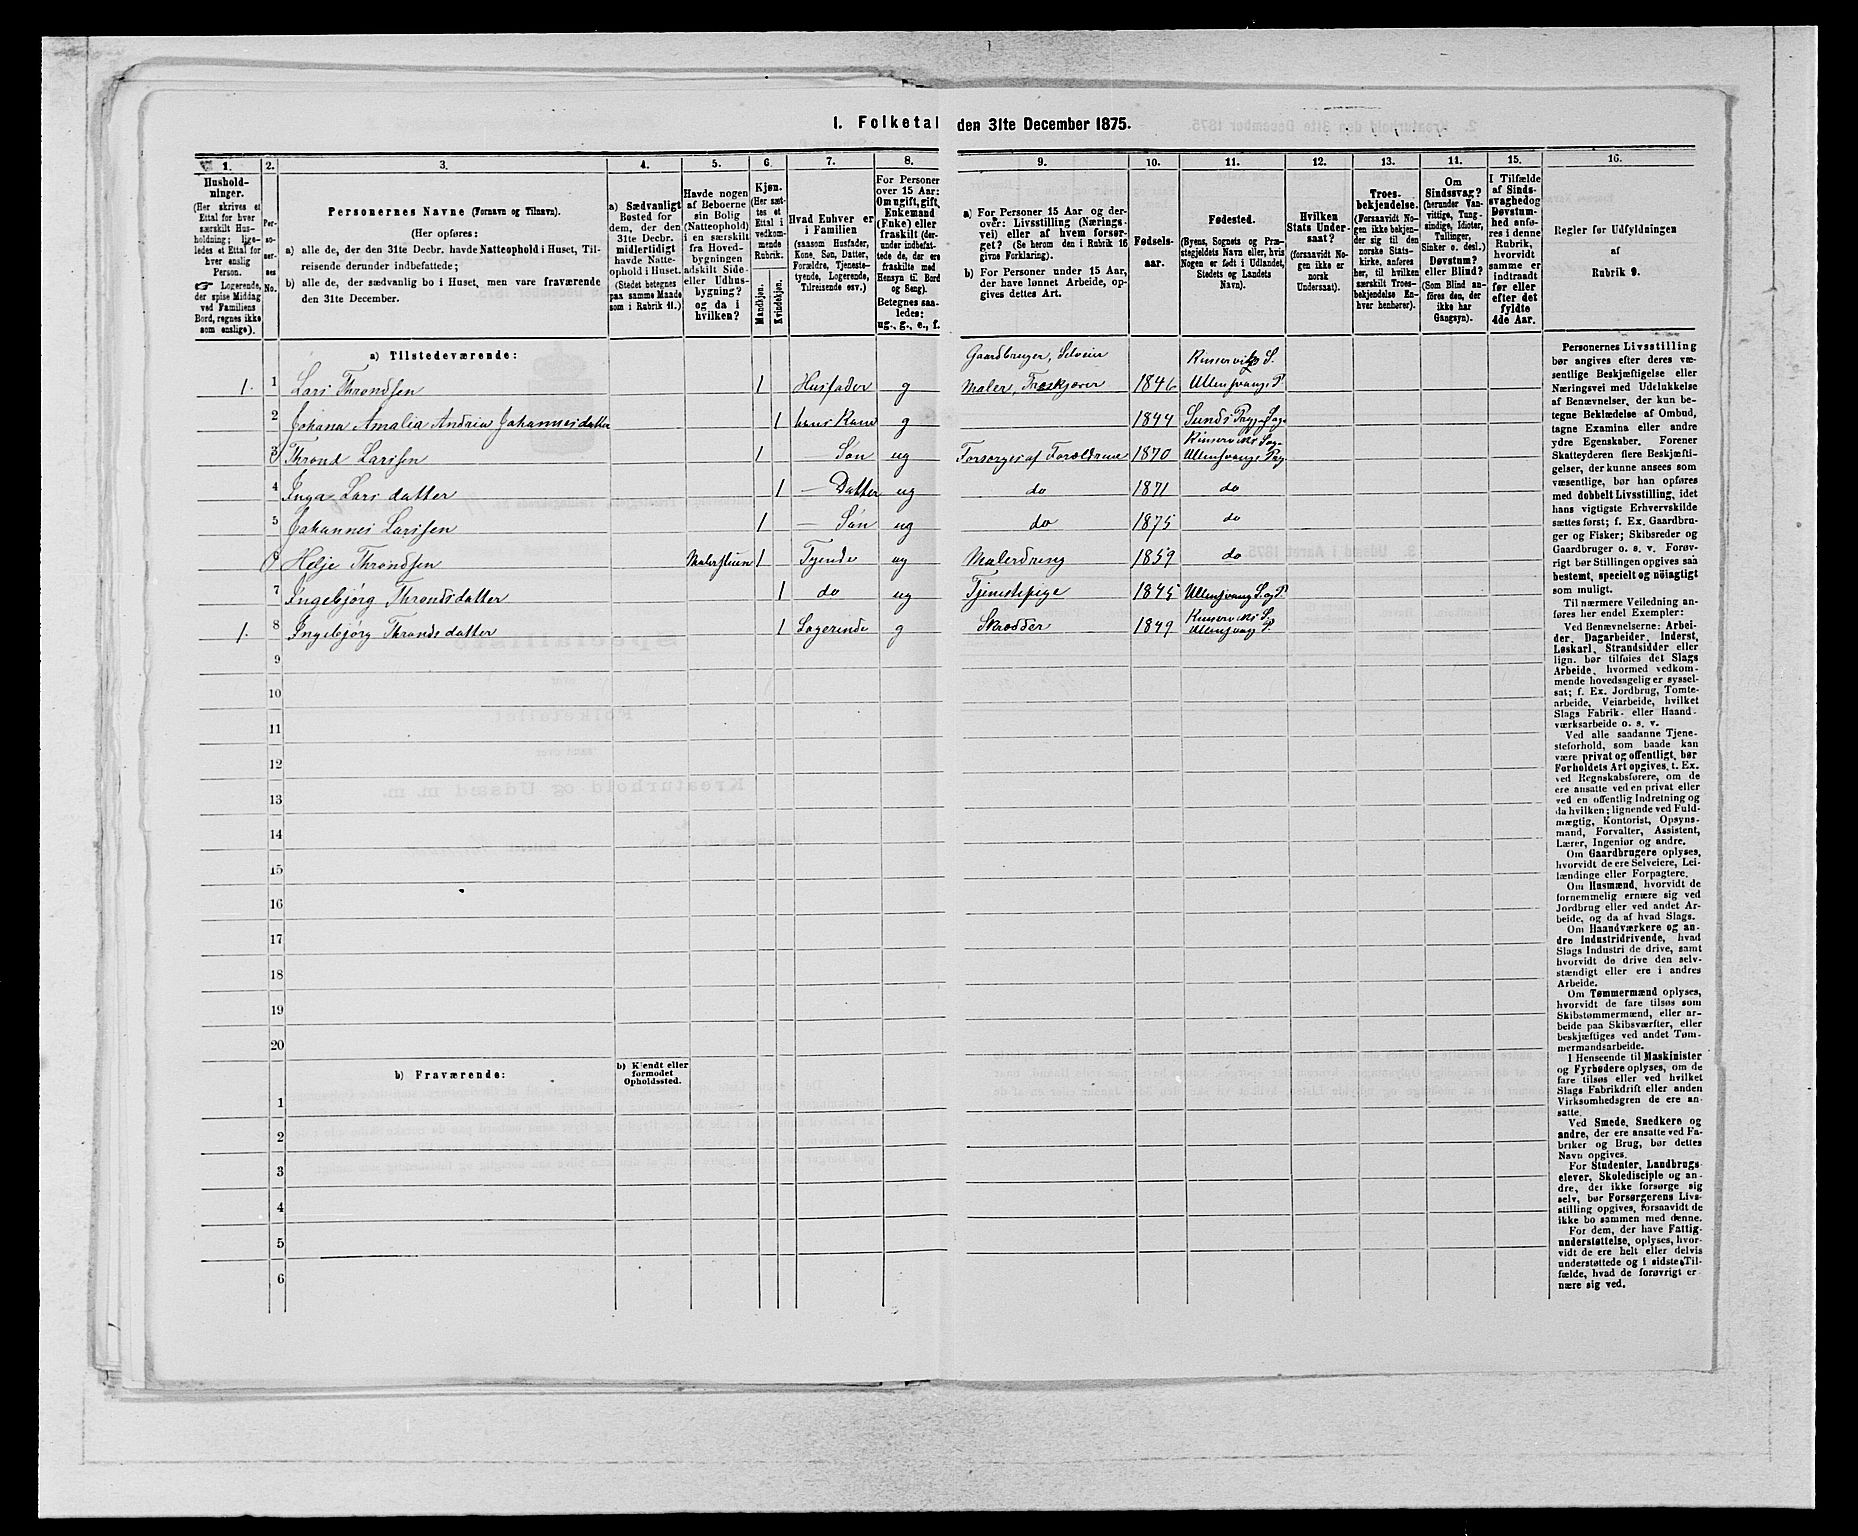 1. Folketal den 31te December 1875.
1.
Hushold-
ninger.
(Her skrives et
Ettal for hver
særskilt Hus-
holdning; lige-
ledes et Ettal for
hver enslig
Person.
☞ Logerende,
der spise Middag
ved Familiens
Bord, regnes ikke
som enslige).
2.
Per-
so-
ner-
nes
No.
3.
Personernes Navne (Fornavn og Tilnavn).
(Her opføres:
a) alle de, der den 31te Decbr. havde Natteophold i Huset, Til-
reisende derunder indbefattede;
b) alle de, der sædvanlig bo i Huset, men vare fraværende
den 31te December.
4.
a) Sædvanligt
Bosted for
dem, der den
31te Decbr.
midlertidigt
havde Natte-
ophold i Huset.
(Stedet betegnes
paa samme Maade
som i Rubrik 11.)
5.
Havde nogen
af Beboerne
sin Bolig
(Natteophold)
i en særskilt
fra Hoved-
bygningen
adskilt Side-
eller Udhus-
bygning?
og da i
hvilken?
6.
Kjøn.
(Her sæt-
tes et
Ettal i
vedkom-
mende
Rubrik.
Mandkjøn.
Kvindekjøn.
7.
Hvad Enhver er
i Familien
(saasom Husfader,
Kone, Søn, Datter,
Forældre, Tjeneste-
tyende, Logerende,
Tilreisende osv.)
8.
For Personer
over 15 Aar:
Om ugift, gift,
Enkemand
(Enke) eller
fraskilt (der-
under indbefat-
tede de, der ere
fraskilte med
Hensyn til Bord
og Seng).
Betegnes saa-
ledes:
ug., g., e., f.
9.
a) For Personer 15 Aar og der-
over: Livsstilling (Nærings-
vei) eller af hvem forsør-
get? (Se herom den i Rubrik 16
givne Forklaring).
b) For Personer under 15 Aar,
der have lønnet Arbeide, op-
gives dettes Art.
10.
Fødsels-
aar.
11.
Fødested.
(Byens, Sognets og Præ-
stegjeldets Navn eller, hvis
Nogen er født i Udlandet,
Stedets og Landets
Navn).
12.
Hvilken
Stats Under-
saat?
(forsaavidt No-
gen ikke er
norsk
Undersaat).
13.
Troes-
bekjendelse.
(Forsaavidt No-
gen ikke bekjen-
der sig til den
norske Stats-
kirke, anføres
her, til hvilken
særskilt Troes-
bekjendelse En-
hver henhører).
14.
Om
Sindssvag?
(herunder Van-
vittige, Tung-
sindige, Idioter,
Tullinger,
Sinker o. desl.)
Døvstum?
eller Blind?
(Som Blind an-
føres den, der
ikke har
Gangsyn).
15.
I Tilfælde
af Sinds-
svaghed og
Døvstum-
hed anfø-
res i denne
Rubrik,
hvorvidt
samme er
indtraadt
før eller
efter det
fyldte
4de Aar.
16.
Regler for Udfyldningen
af
Rubrik 9.
a) Tilstedeværende:
1. 1 Lars Throndsen 1 Husfader g Gaardbruger, Selveier Maler, Træskjærer 1846 Kinserviks S. Ullensvangs P
2 Johana Amalia Andria Johannesdatter 1 hans Kone g 1844 Sunds Præg. Sog.
3 Thrond Larssen 1 Søn ug Forsørges af Forældrene 1870 Kinserviks Sog. Ullensvangs Præg
4 Inga Larsdatter 1 — Datter ug do 1871 do
5 Johannes Larssen 1 — Søn ug do 1875 do
6 Helje Throndsen Malerstuen 1 Tyende ug Malerdreng 1859 do
7 Ingebjörg Throndsdatter 1 do ug Tjenestepige 1845 Ullensvang S. og P
1. 8 Ingebjörg Throndsdatter 1 Logerende g Skrædder 1849 Kinserviks S. Ullensvangs P.
9
10
11
12
13
14
15
16
17
18
19
20
b) Fraværende:
b) Kjendt eller
formodet
Opholdssted.
1
2
3
4
5
6
Personernes Livsstilling
bør angives efter deres væ-
sentlige Beskjæftigelse eller
Næringsvei med Udelukkelse
af Benævnelser, der kun be-
tegne Beklædelse af Ombud,
tagne Examina eller andre
ydre Egenskaber. Forener
Skatteyderen flere Beskjæfti-
gelser, der kunne ansees som
væsentlige, bør han opføres
med dobbelt Livsstilling, idet
hans vigtigste Erhvervskilde
sættes først; f. Ex. Gaardbru-
ger og Fisker; Skibsreder og
Gaardbruger o. s. v. Forøv-
rigt bør Stillingen opgives saa
bestemt, specielt og nöiagtigt
som muligt.
Til nærmere Veiledning an-
føres her endel Exempler:
Ved Benævnelserne: Arbei-
der, Dagarbeider, Inderst,
Løskarl, Strandsidder eller
lign. bør tilføies det Slags
Arbeide, hvormed vedkom-
mende hovedsagelig er syssel-
sat; f. Ex. Jordbrug, Tomte-
arbeide, Veiarbeide, hvilket
Slags Fabrik- eller Haand-
værksarbeide o. s. v.
Ved alle saadanne Tjene-
steforhold, som baade kan
være privat og offentligt, bør
Forholdets Art opgives, t. Ex.
ved Regnskabsførere, om de
ere ansatte ved en privat eller
ved en offentlig Indretning og
da hvilken; lignende ved Fuld-
mægtig, Kontorist, Opsyns-
mand, Forvalter, Assistent,
Lærer, Ingeniør og andre.
Om Gaardbrugere oplyses,
hvorvidt de ere Selveiere, Lei-
lændinge eller Forpagtere.
Om Husmænd, hvorvidt de
fornemmelig ernære sig ved
Jordbrug eller ved andet Ar-
beide, og da af hvad Slags.
Om Haandværkere og an-
dre Industridrivende, hvad
Slags Industri de drive, samt
hvorvidt de drive den selv-
stændigt eller ere i andres
Arbeide.
Om Tømmermænd oplyses,
hvorvidt de fare tilsøs som
Skibstømmermænd, eller ar-
beide paa Skibsværfter, eller
beskjæftiges ved andet Tøm-
mermandsarbeide.
I Henseende til Maskinister
og Fyrbødere oplyses, om de
fare tilsøs eller ved hvilket
Slags Fabrikdrift eller anden
Virksomhedsgren de ere an-
satte.
Ved Smede, Snedkere og
andre, der ere ansatte ved Fa-
briker og Brug, bør dettes
Navn opgives.
For Studenter, Landbrugs-
elever, Skoledisciple og an-
dre, der ikke forsørge sig
selv, bør Forsørgerens Livs-
stilling opgives, forsaavidt de
ikke bo sammen med denne.
For dem, der have Fattig-
understøttelse, oplyses, hvor-
vidt de ere helt eller delvis
understøttede og i sidste Til-
fælde, hvad de forøvrigt er-
nære sig ved.